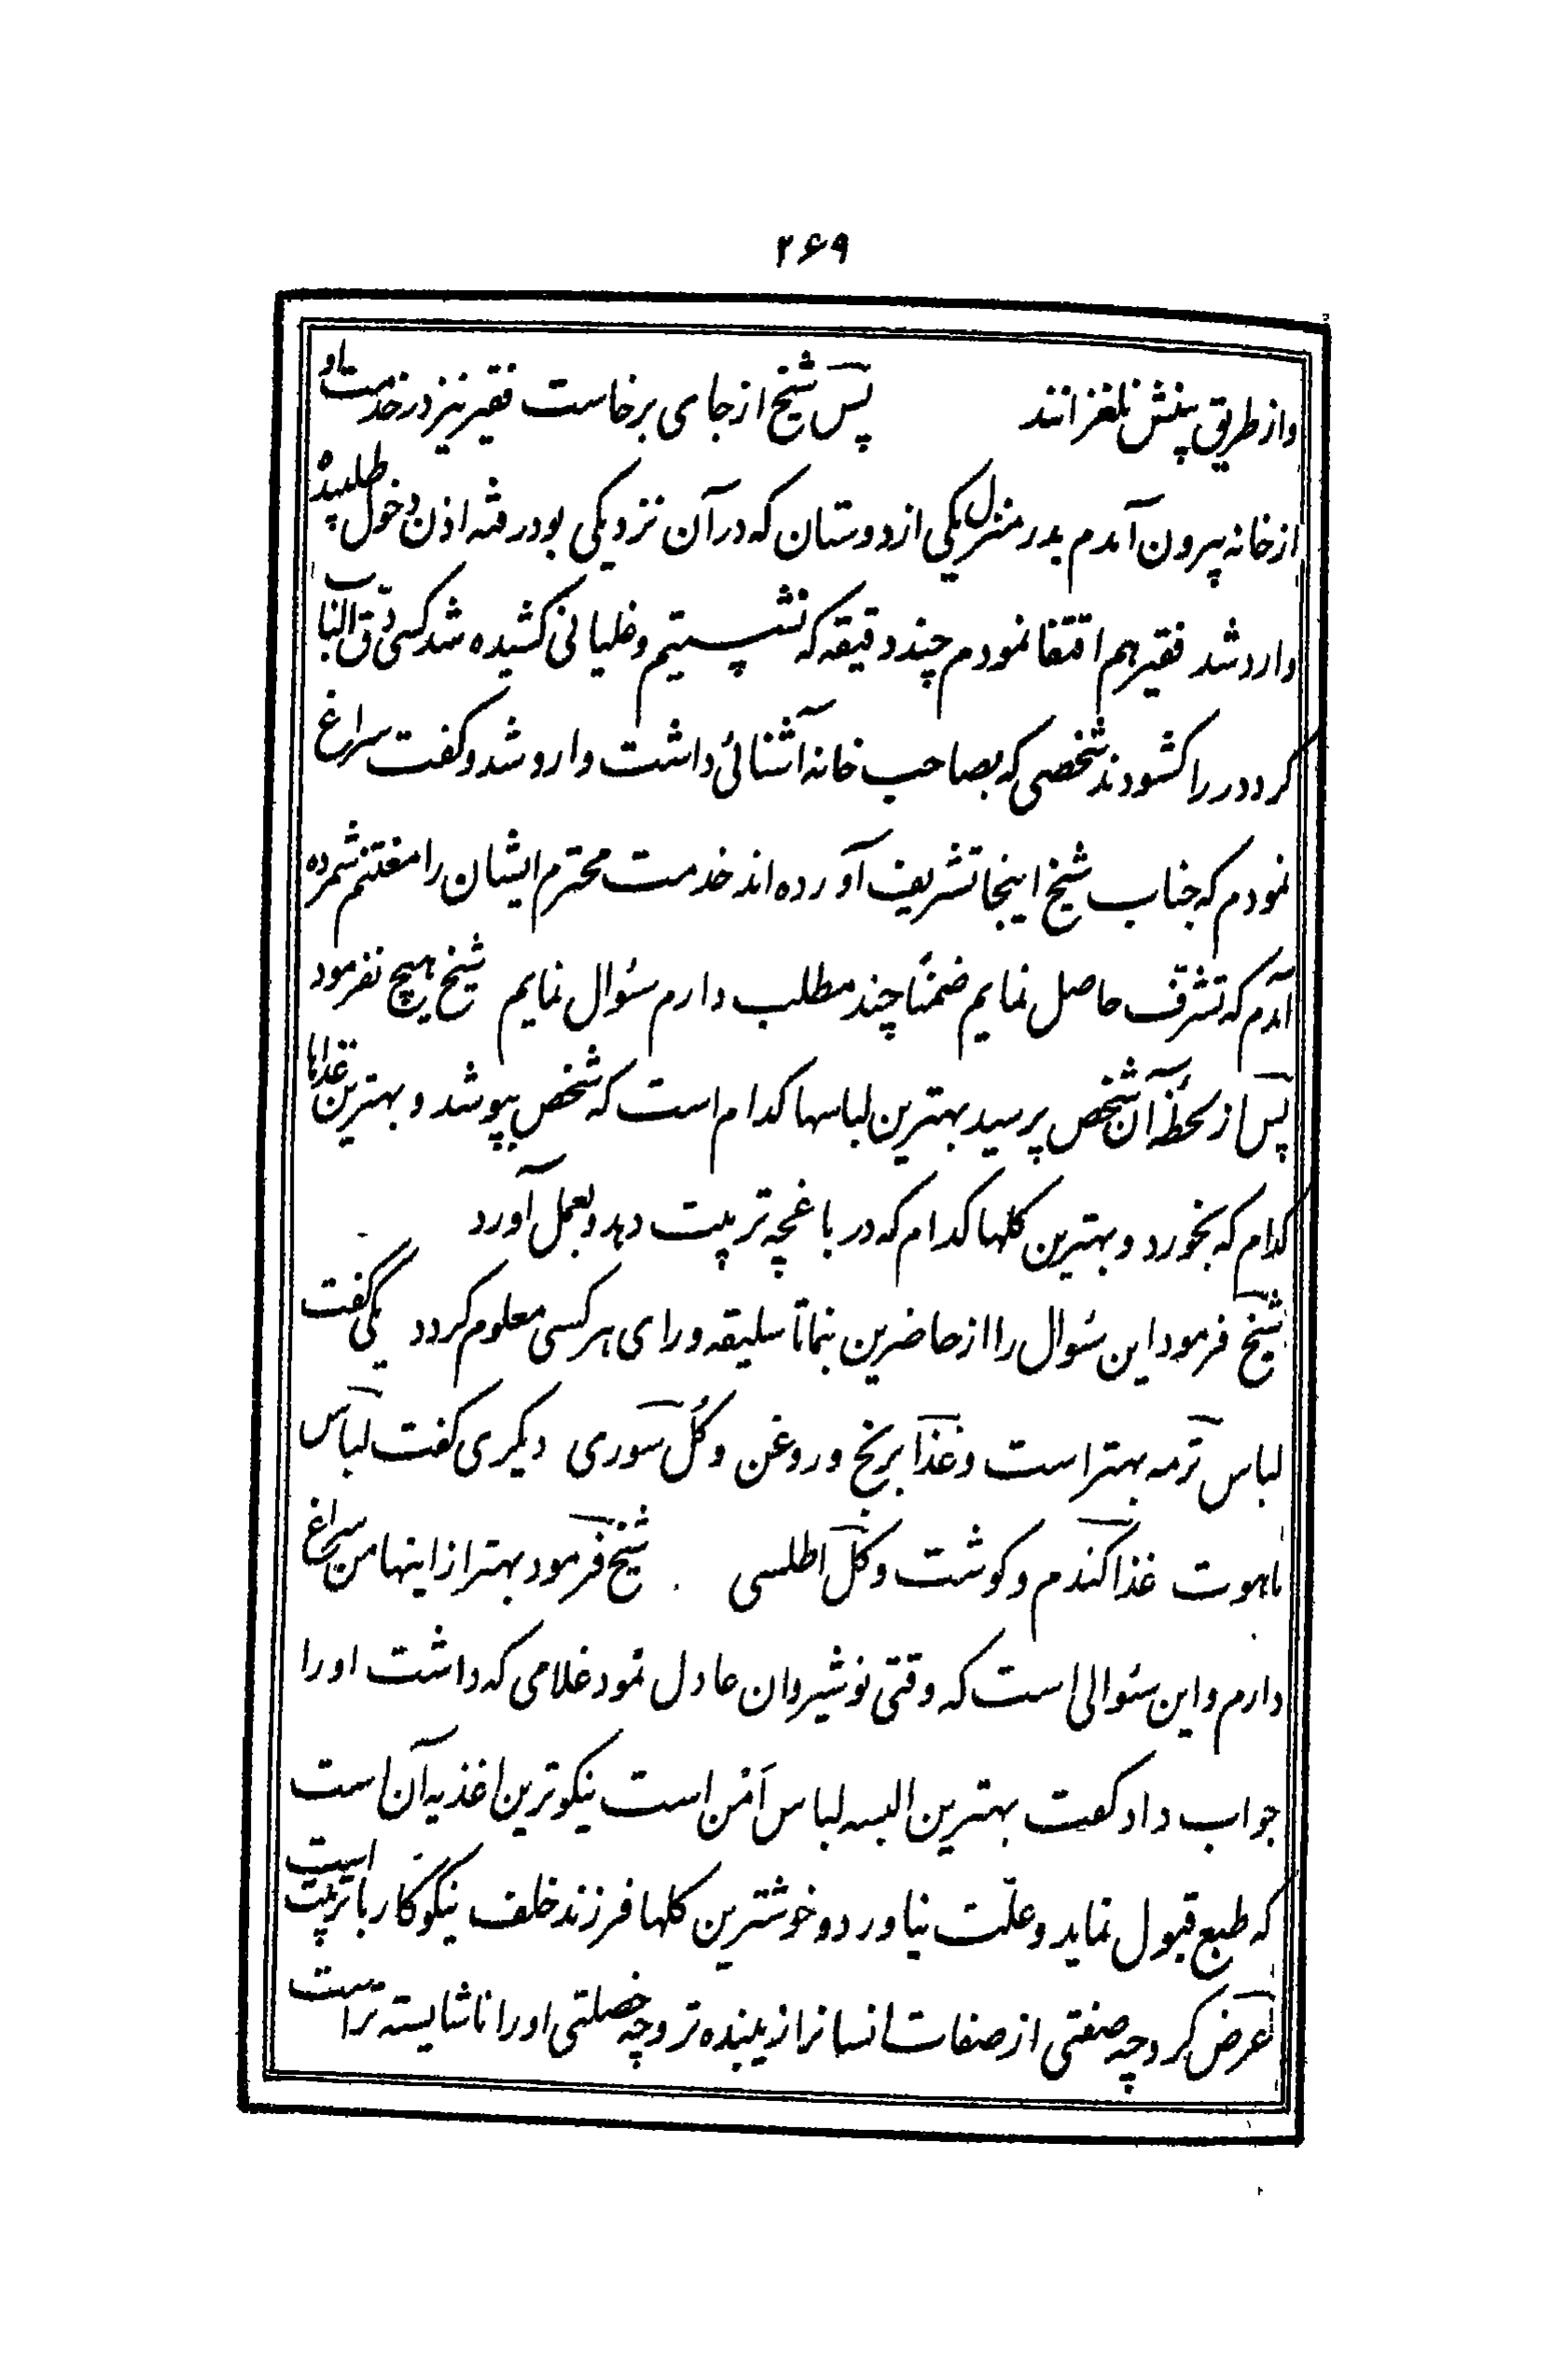 ۲۶۹
واز طریق بینش نلغزانند پس شیخ از جای برخاست فقیر نیز در خدمت او
از خانه بیرون آمدم بدر منزل یکی از دوستان که در آن نزدیکی بود رفته اذن دخول طلبیده
وارد شد فقیر هم اقتفا نمودم چند دقیقه که نشستیم و غلیانی کشیده شد کسی دق الباب
کرد در را کشودند شخصی که بصاحب خانه آشنائی داشت وارد شد و کفت سراغ
نمودم که جناب شیخ اینجا تشریف آورده اند خدمت محترم ایشان را مغتنم شمرده
آمدم که تشرف حاصل نمایم ضمناً چند مطلب دارم سئوال نمایم شیخ هیچ نفرمود
پس از لحظۀ آن شخص پرسید بهترین لباسها کدام است که شخص بپوشد و بهترین غذاها
کدام که بخورد و بهترین کلها کدام که در باغچه تربیت دهد و بعمل آورد
شیخ فرمود این سئوال را از حاضرین بنما تا سلیقه و رای هر کسی معلوم کردد یکی گفت
لباس ترمه بهتر است و غذا برنج و روغن و کُل سوری دیکری کفت لباس
ماهوت غذا کندم و کوشت و کل اطلسی شیخ فرمود بهتر از اینها من سراغ
دارم و این سئوالی است که وقتی نوشیروان عادل نمود غلامی که داشت او را
جواب داد کفت بهترین البسه لباس اَمن است نیکوترین اغذیه آن است
که طبع قبول نماید و علّت نیاورد و خوشترین کلها فرزند خلف نیکوکار با تربیت است
عرض کرد چه صفتی از صفات انسانرا زیبنده تر و چه خصلتی او را ناشایسته تر است